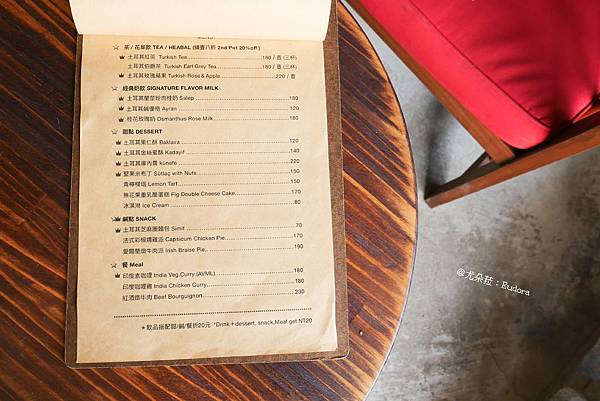 茶 / 花草飲 TEA / HEABAL (續壺八折 2nd Pot 20%off )
土耳其紅茶 Turkish Tea 180 / 壺 (三杯)
土耳其伯爵茶 Turkish Earl Grey Tea 180 / 壺 (三杯)
土耳其玫瑰蘋果 Turkish Rose & Apple 220 / 壺
經典奶飲 SIGNATURE FLAVOR MILK
土耳其蘭莖粉肉桂奶 Salep 180
土耳其鹹優格 Ayran 120
桂花玫瑰奶 Osmanthus Rose Milk 180
甜點 DESSERT
土耳其果仁酥 Baklava 120
土耳其金絲蜜酥 Kadayif 140
土耳其庫內費 künefe 220
堅果米布丁 Sütlaç with Nuts 150
青檸檬塔 Lemon Tart 150
無花果重乳酪蛋糕 Fig Double Cheese Cake 170
冰淇淋 Ice Cream 80
鹹點 SNACK
土耳其芝麻圈麵包 Simit 70
法式彩椒燻雞派 Capsicum Chicken Pie 170
愛爾蘭燉牛肉派 Irish Braise Pie 190
餐 Meal
印度素咖哩 India Veg.Curry (AVML) 180
印度咖哩雞 India Chicken Curry 180
紅酒燉牛肉 Beef Bourguignon 230
*飲品搭配甜/鹹/餐折20元 *Drink + dessert, snack,Meal get NT20
@尤朵菈：Eudora